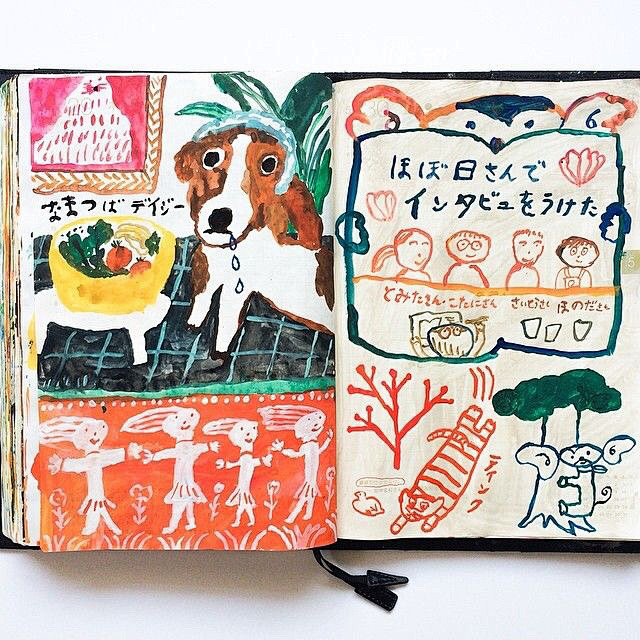 なまつば デイジー
6
ほぼ日さんで
インタビューをうけた
とみたさん・こたにさん さいとうさん ほのださん
ティング
6
3